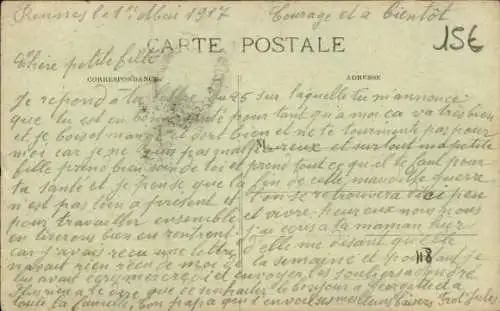 Rennes le 1er Mai 1917 Courage et a bientôt
15€
CARTE POSTALE
Chère petite fille
CORRESPONDANCE ADRESSE
Je repond à ta lettre du 25 sur laquelle tu m'annonce
que tu est en bonne santé pour tant qu'a moi ca va très bien
et je bois et mange et dort bien et ne te tourmente pas pour
moi car je ne suis pas malheureux et surtout ma petite
fille prend bien soin de toi et prend tout ce qu'il te faut pour
ta santé et je pense que la fin de cette maudite guerre
n'est pas loin a present et l'on se retrouvera ici peu
pour travailler ensemble et vivre heureux nous nous
en tirerons bien en rentrant j'ai ecris a ta maman hier
car j'avais recu une lettre d'elle me disant que
n'avait rien recu de moi de la semaine et pourtant je
lui avait ecris et envoyer les souliers a
118
rien a te dire que te souhaiter le bonjour a Georgette et a
toute la famille, ton papa qui t'envoie ses meilleurs baisers Jules